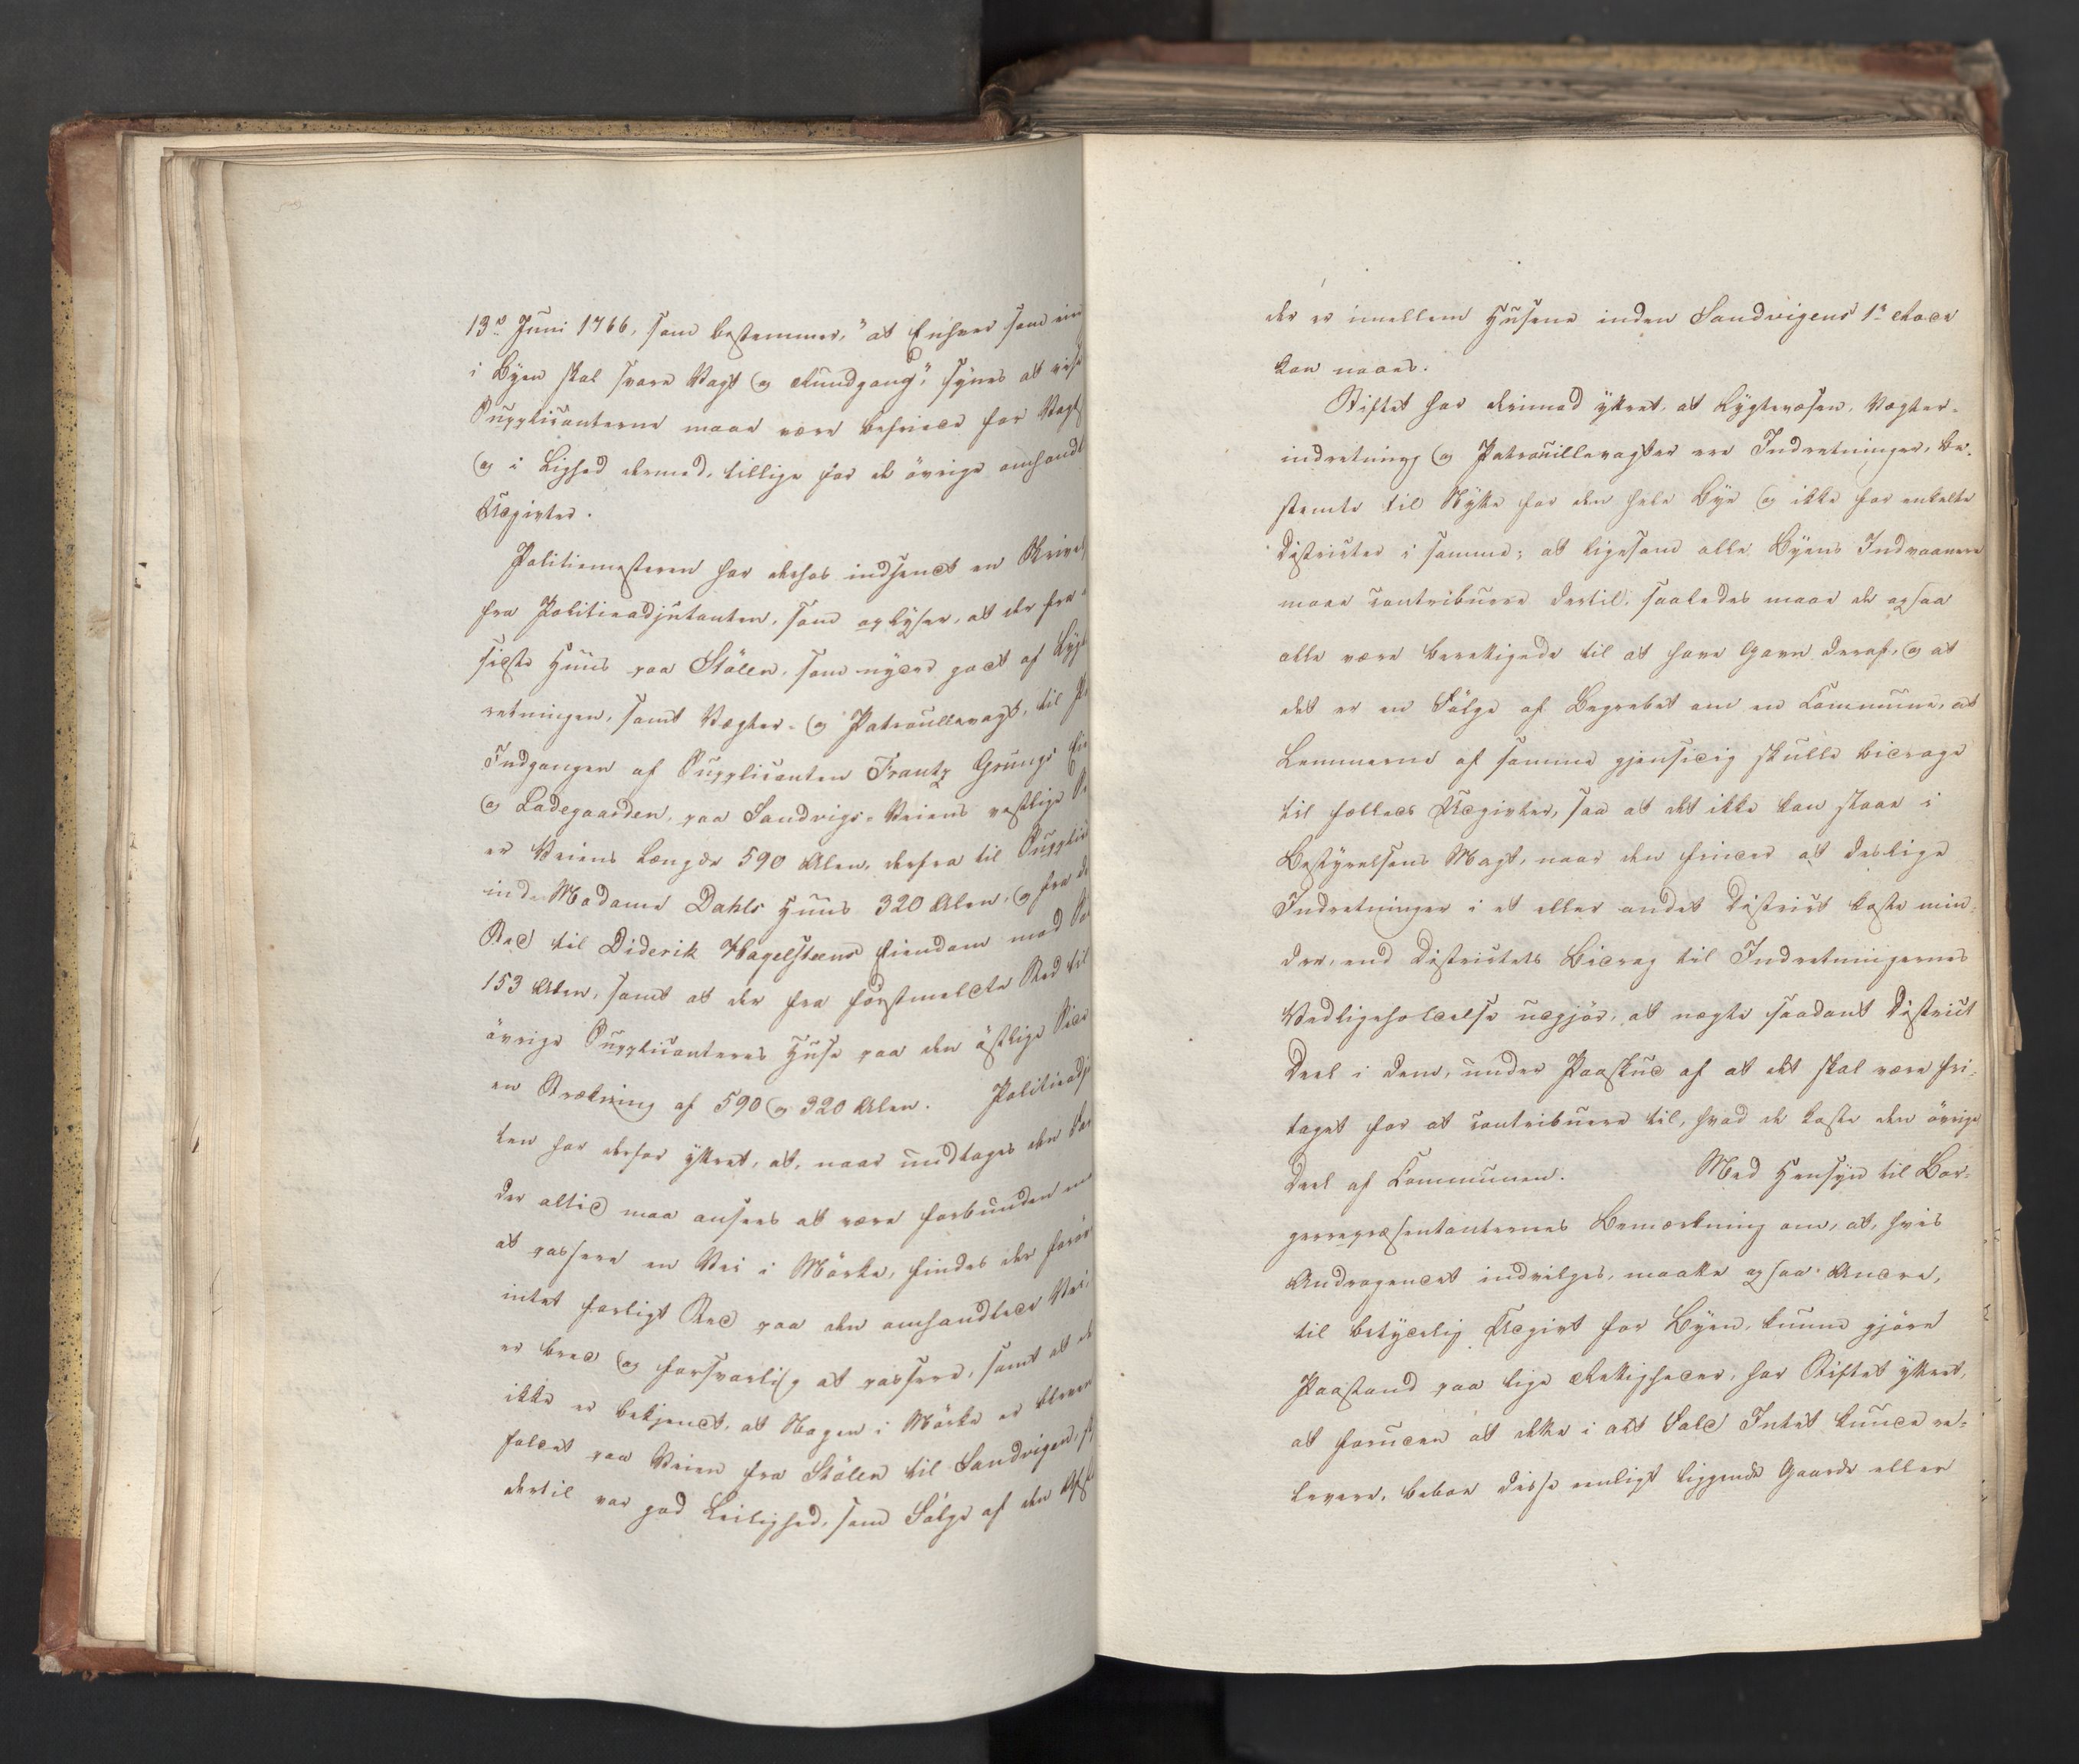 13de Juni 1766, som bestemmer, "at Enhver som
i Byen skal svare Vagt og Rundgang", synes at
Supplicanterne maae være befriede for Vagt
og i Lighed dermed, tillige for de övrige omhand
Udgivter.
Politiemesteren har derhos indsendt en Skriv
fra Politieadjutanten, som oplyser, at der fra
sidste Huus paa Stölen, som nyder godt af Lyg
retningen, samt Vægter- og Patrouillevagt, til
Indgangen af Supplicanten Frantz Grungs
og Ladegaarden, paa Sandvigs-Veiens vestlige
er Veiens Længde 590 Alen, derfra til Supplic
inde Madame Dahls Huus 320 Alen, og fra
Sted til Diderik Hagelsteens Eiendom med
153 Alen, samt at der fra förstmeldte Sted til
övrige Supplicanteres Huse paa den östlige Side
en Strækning af 590 og 320 Alen. Politieadj
ten har derfor yttret, at, naar undtages den
der altid maa ansees at være forbunden
at passere en Vei i Mörke, findes der
intet farligt Sted paa den omhandlede Vei,
er bred og forsvarlig at passere, samt at
ikke er bekjendt, at Nogen i Mörke er bleven
faldet paa Veien fra Stölen til Sandvigen,
dertil var god Leilighed, som Fölge af den
der er imellem Husene inden Sandvigens 1ste Rode
kan naaes.
Stiftet har derimod yttret, at Lygtevæsen, Vægter-
indretning og Patrouillevagter ere Indretninger, be-
stemte til Nytte for den hele Bye og ikke for enkelte
Districter i samme; at ligesom alle Byens Indvaanere
maae contribuere dertil, saaledes maae de ogsaa
alle være berettigede til at have Gavn deraf, og at
det er en Fölge af Begrebet om en Commune, at
Lemmerne af samme gjensidig skulle bidrage
til fælleds Udgivter, saa at det ikke kan staae i
Bestyrelsens Magt, naar den finder at deslige
Indretninger i et eller andet District koste min-
dre, end Districtets Bidrag til Indretningernes
Vedligeholdelse udgjör, at nægte saadant District
Deel i dem, under Paaskud af at det skal være fri-
taget for at contribuere til, hvad de koste den övrige
Deel af Communen. Med Hensyn til Bor-
gerrepræsentanternes Bemærkning om, at, hvis
Andragendet indvilges, maatte ogsaa Andre,
til betydelig Udgivt for Byen, kunne gjöre
Paastand paa lige Rettigheder, har Stiftet yttret,
at foruden at dette i alt Fald Intet kunde re-
levere, beboe disse enligt liggende Gaarde eller